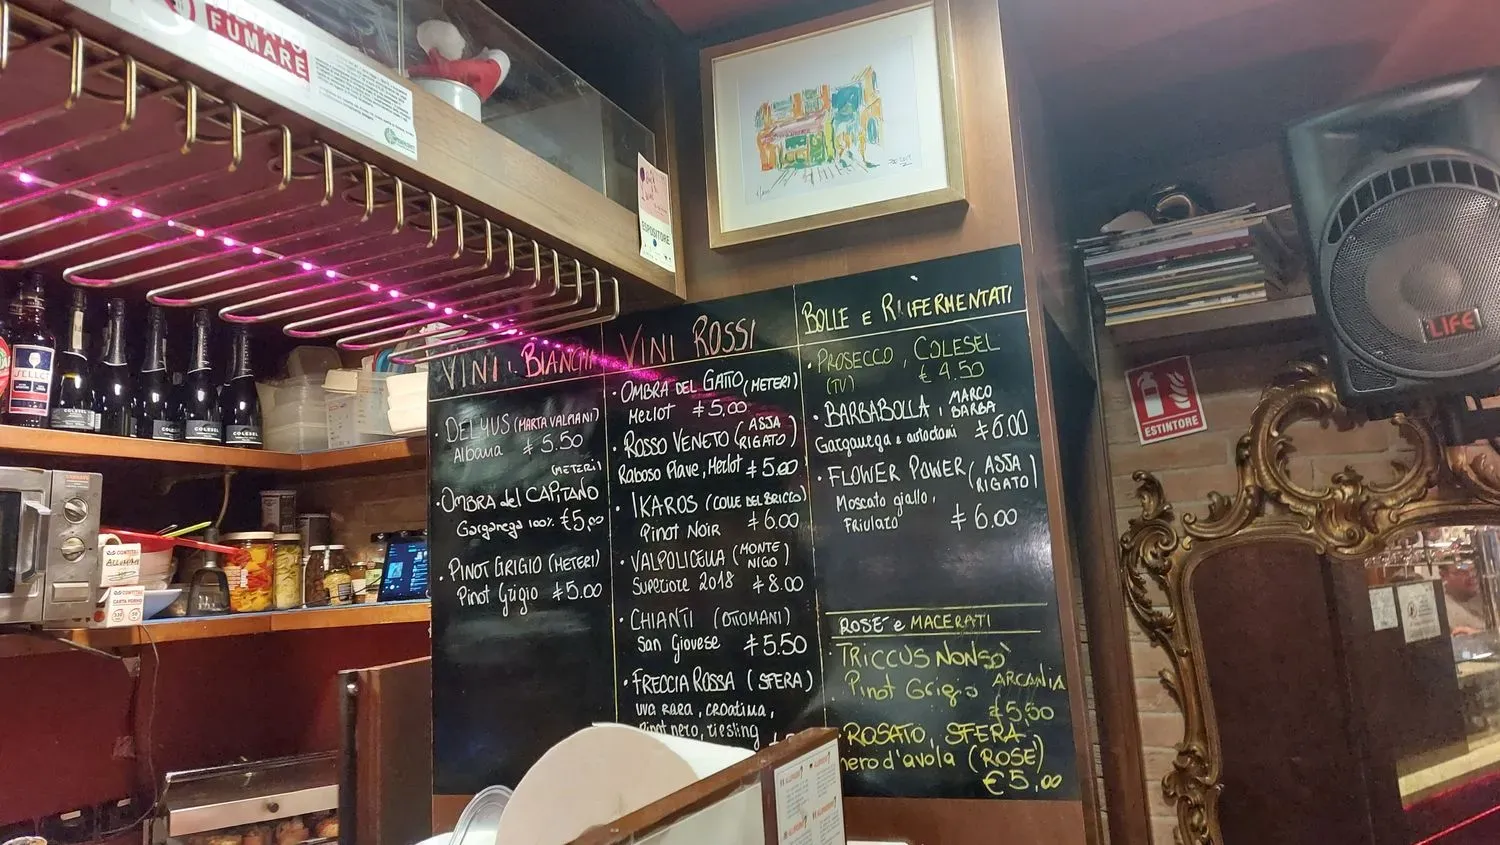 VIETATO
FUMARE
ESPOSITORE
VINI BIANCHI
DELYUS (MARTA VALPIANI)
Albana € 5.50
(METERI)
OMBRA del CAPITANO
Garganega 100% €5,00
PINOT GRIGIO (METERI)
Pinot Grigio €5.00
VINI ROSSI
OMBRA DEL GATTO (METERI)
Merlot €5,00
ROSSO VENETO (ASJA RIGATO)
Raboso Piave, Merlot €5.00
IKAROS (COLLE DEL BRICCO)
PINOT NOIR €6.00
VALPOLICELLA (MONTE NIGO)
Superiore 2018 €8.00
CHIANTI (OTTOMANI)
San Giovese €5.50
FRECCIA ROSSA (SFERA)
UVA RARA, CROATINA,
Pinot nero, riesling
BOLLE E RIFERMENTATI
PROSECCO, COLESEL
(TV) € 4.50
BARBABOLLA, MARCO BARBA
Garganega e autoctoni €6.00
FLOWER POWER (ASJA RIGATO)
Moscato giallo,
Friulato € 6.00
ROSÈ e MACERATI
TRICCUS NONSÒ
Pinot Grigio ARCANIA
€5,50
ROSATO, SFERA
nero d'avola (ROSE)
€5,00
LIFE
ESTINTORE
SELECT
COLESEL
COLESEL
COLESEL
COLESEL
ALLERGENI